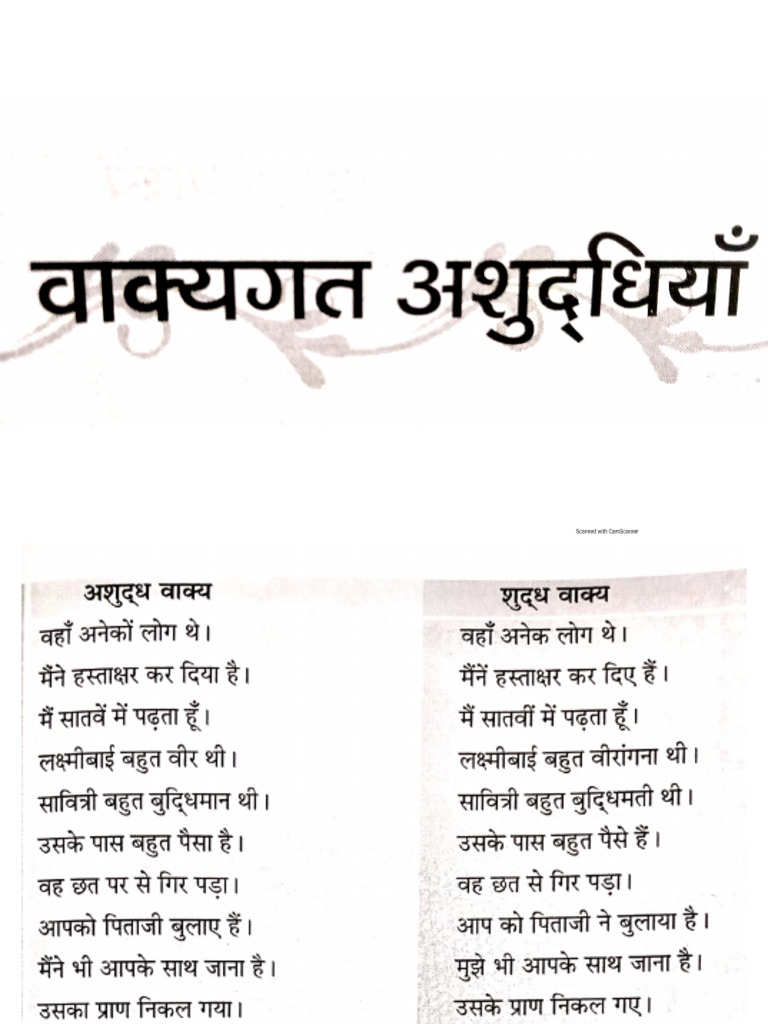 वाक्यगत अशुद्‌धियाँ
Scanned with CamScanner
अशुद्‌ध वाक्य शुद्‌ध वाक्य
वहाँ अनेकों लोग थे। वहाँ अनेक लोग थे।
मैंने हस्ताक्षर कर दिया है। मैंनें हस्ताक्षर कर दिए हैं।
मैं सातवें में पढ़ता हूँ। मैं सातवीं में पढ़ता हूँ।
लक्ष्मीबाई बहुत वीर थी। लक्ष्मीबाई बहुत वीरांगना थी।
सावित्री बहुत बुद्‌धिमान थी। सावित्री बहुत बुद्‌धिमती थी।
उसके पास बहुत पैसा है। उसके पास बहुत पैसे हैं।
वह छत पर से गिर पड़ा। वह छत से गिर पड़ा।
आपको पिताजी बुलाए हैं। आप को पिताजी ने बुलाया है।
मैंने भी आपके साथ जाना है। मुझे भी आपके साथ जाना है।
उसका प्राण निकल गया। उसके प्राण निकल गए।